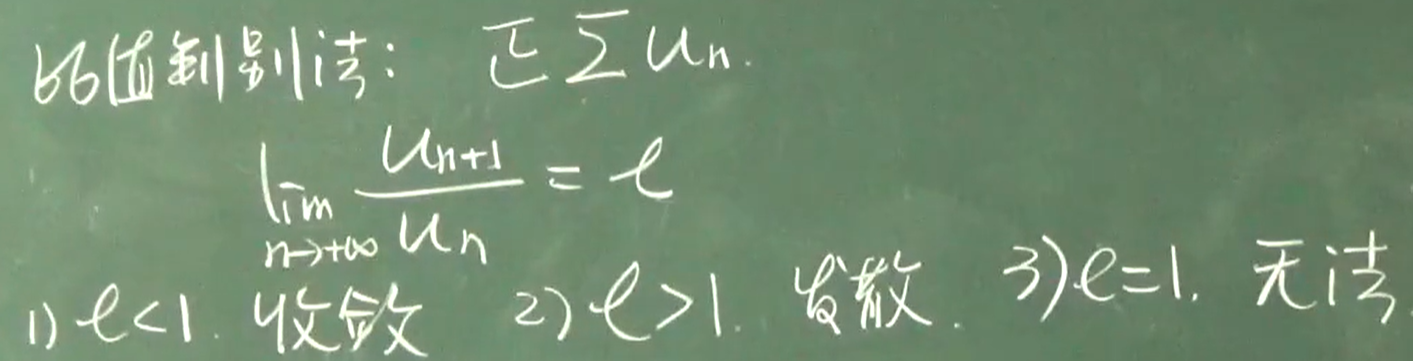 比值判别法: 正∑uₙ.
lim n→+∞ uₙ₊₁/uₙ = ℓ
1) ℓ<1. 收敛 2) ℓ>1. 发散. 3) ℓ=1. 无法